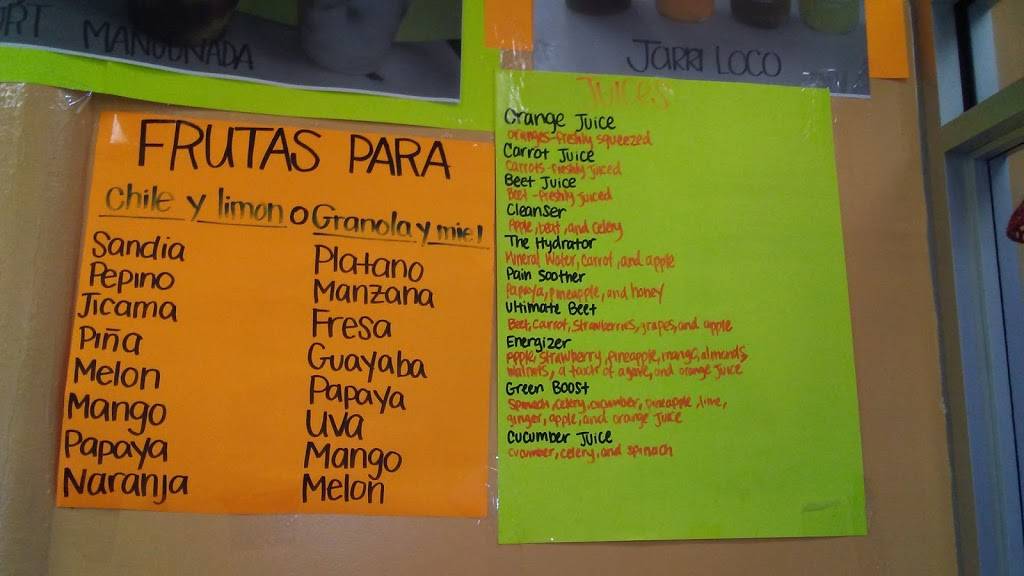 MANGONADA
JARRI LOCO
FRUTAS PARA
Chile y limon o Granola y miel
Sandia
Pepino
Jicama
Piña
Melon
Mango
Papaya
Naranja
Platano
Manzana
Fresa
Guayaba
Papaya
Uva
Mango
Melon
Juices
Orange Juice
oranges-freshly squeezed
Carrot Juice
Carrots-freshly juiced
Beet Juice
Beet-freshly juiced
Cleanser
Apple, beat, and celery
The Hydrator
Mineral Water, carrot, and apple
Pain Soother
Papaya, pineapple, and honey
Ultimate Beet
Beet, carrot, strawberries, grapes, and apple
Energizer
Apple, strawberry, pineapple, mango, almonds,
walnuts, a touch of agave, and orange juice
Green Boost
Spinach, celery, cucumber, pineapple, lime,
ginger, apple, and orange juice
Cucumber Juice
cucumber, celery, and spinach